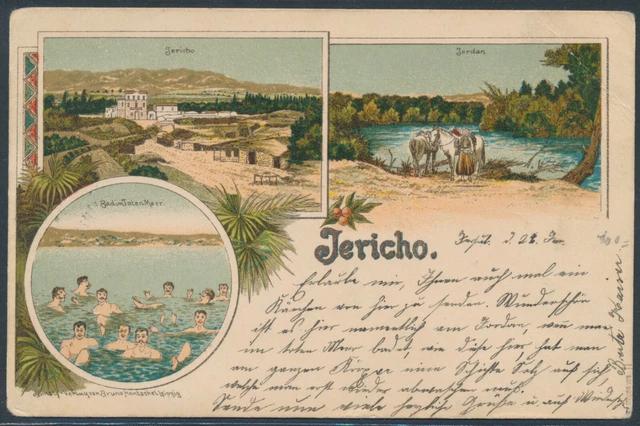 Jericho
Jordan
Bad im Toten Meer.
Jericho.
d. 28. Jan.
Erlaube mir, Ihnen auch mal ein
Kärtchen von hier zu senden. Wunderschön
ist es hier namentlich am Jordan, wenn man
im toten Meer badet, wie diese hier, hat man
am ganzen Körper eine Schichte Salz auf sich
welche man erst wieder abwaschen muß.
Sende nun viele herzliche Grüße und auf Wiedersehn
Verlag von Bruno Hentschel, Leipzig